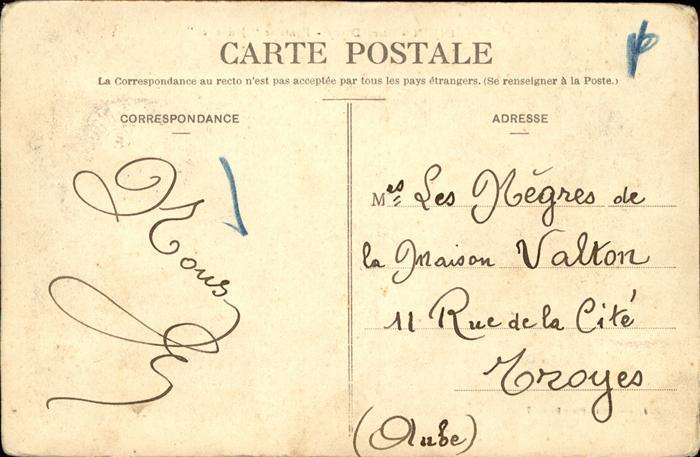 CARTE POSTALE
La Correspondance au recto n'est pas acceptée par tous les pays étrangers. (Se renseigner à la Poste.)
CORRESPONDANCE
Nous
ADRESSE
Mes Les Nègres de
la Maison Valton
11 Rue de la Cité
Troyes
(Aube)